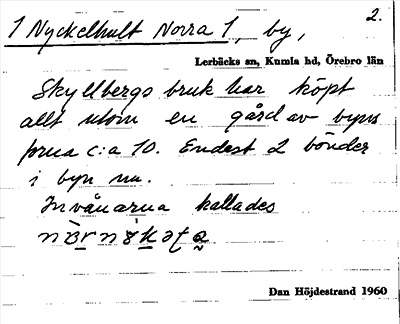 1 Nyckelhult Norra 1, by, 2.
Lerbäcks sn, Kumla hd, Örebro län
Skyllbergs bruk har köpt
allt utom en gård av byns
forna c:a 10. Endast 2 bönder
i byn nu.
Invånarna kallades
Dan Höjdestrand 1960